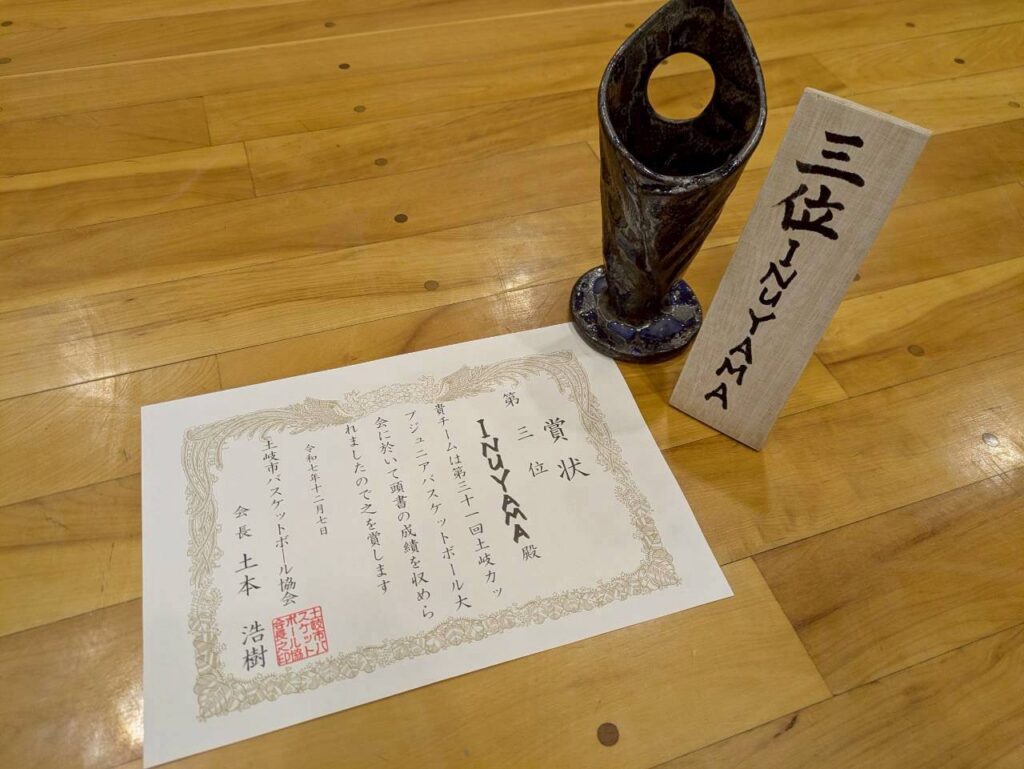 賞状
第三位
INUYAMA殿
貴チームは第三十一回土岐カッ
プジュニアバスケットボール大
会に於いて頭書の成績を収めら
れましたので之を賞します
令和七年十二月七日
土岐市バスケットボール協会
会長 土本 浩樹
土岐市バ
スケット
ボール協
会長之印
三位 INUYAMA